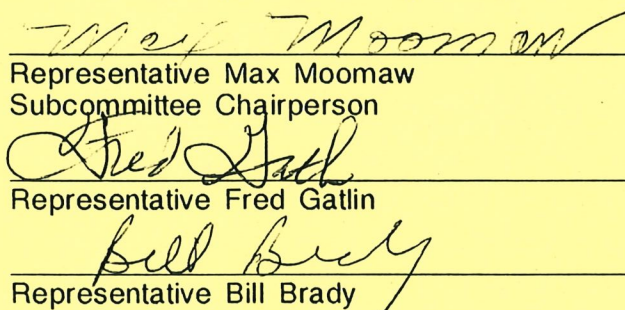 Max Moomaw
Representative Max Moomaw
Subcommittee Chairperson
Fred Gatl
Representative Fred Gatlin
Bill Brady
Representative Bill Brady